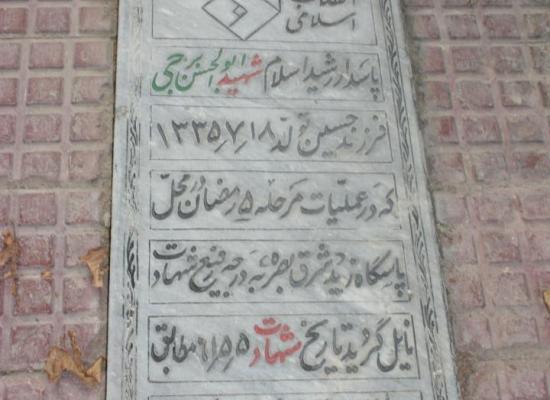 اسلامی
پاسدار رشید اسلام شهید ابوالحسن برجی
فرزند حسین تولد ۱۳۳۵٫۷٫۱۸
که در عملیات مرحله ۵ رمضان در محل
پاسگاه زید شرق بصره به درجه رفیع شهادت
نایل گردید تاریخ شهادت ۶۱٫۵٫۵ مطابق